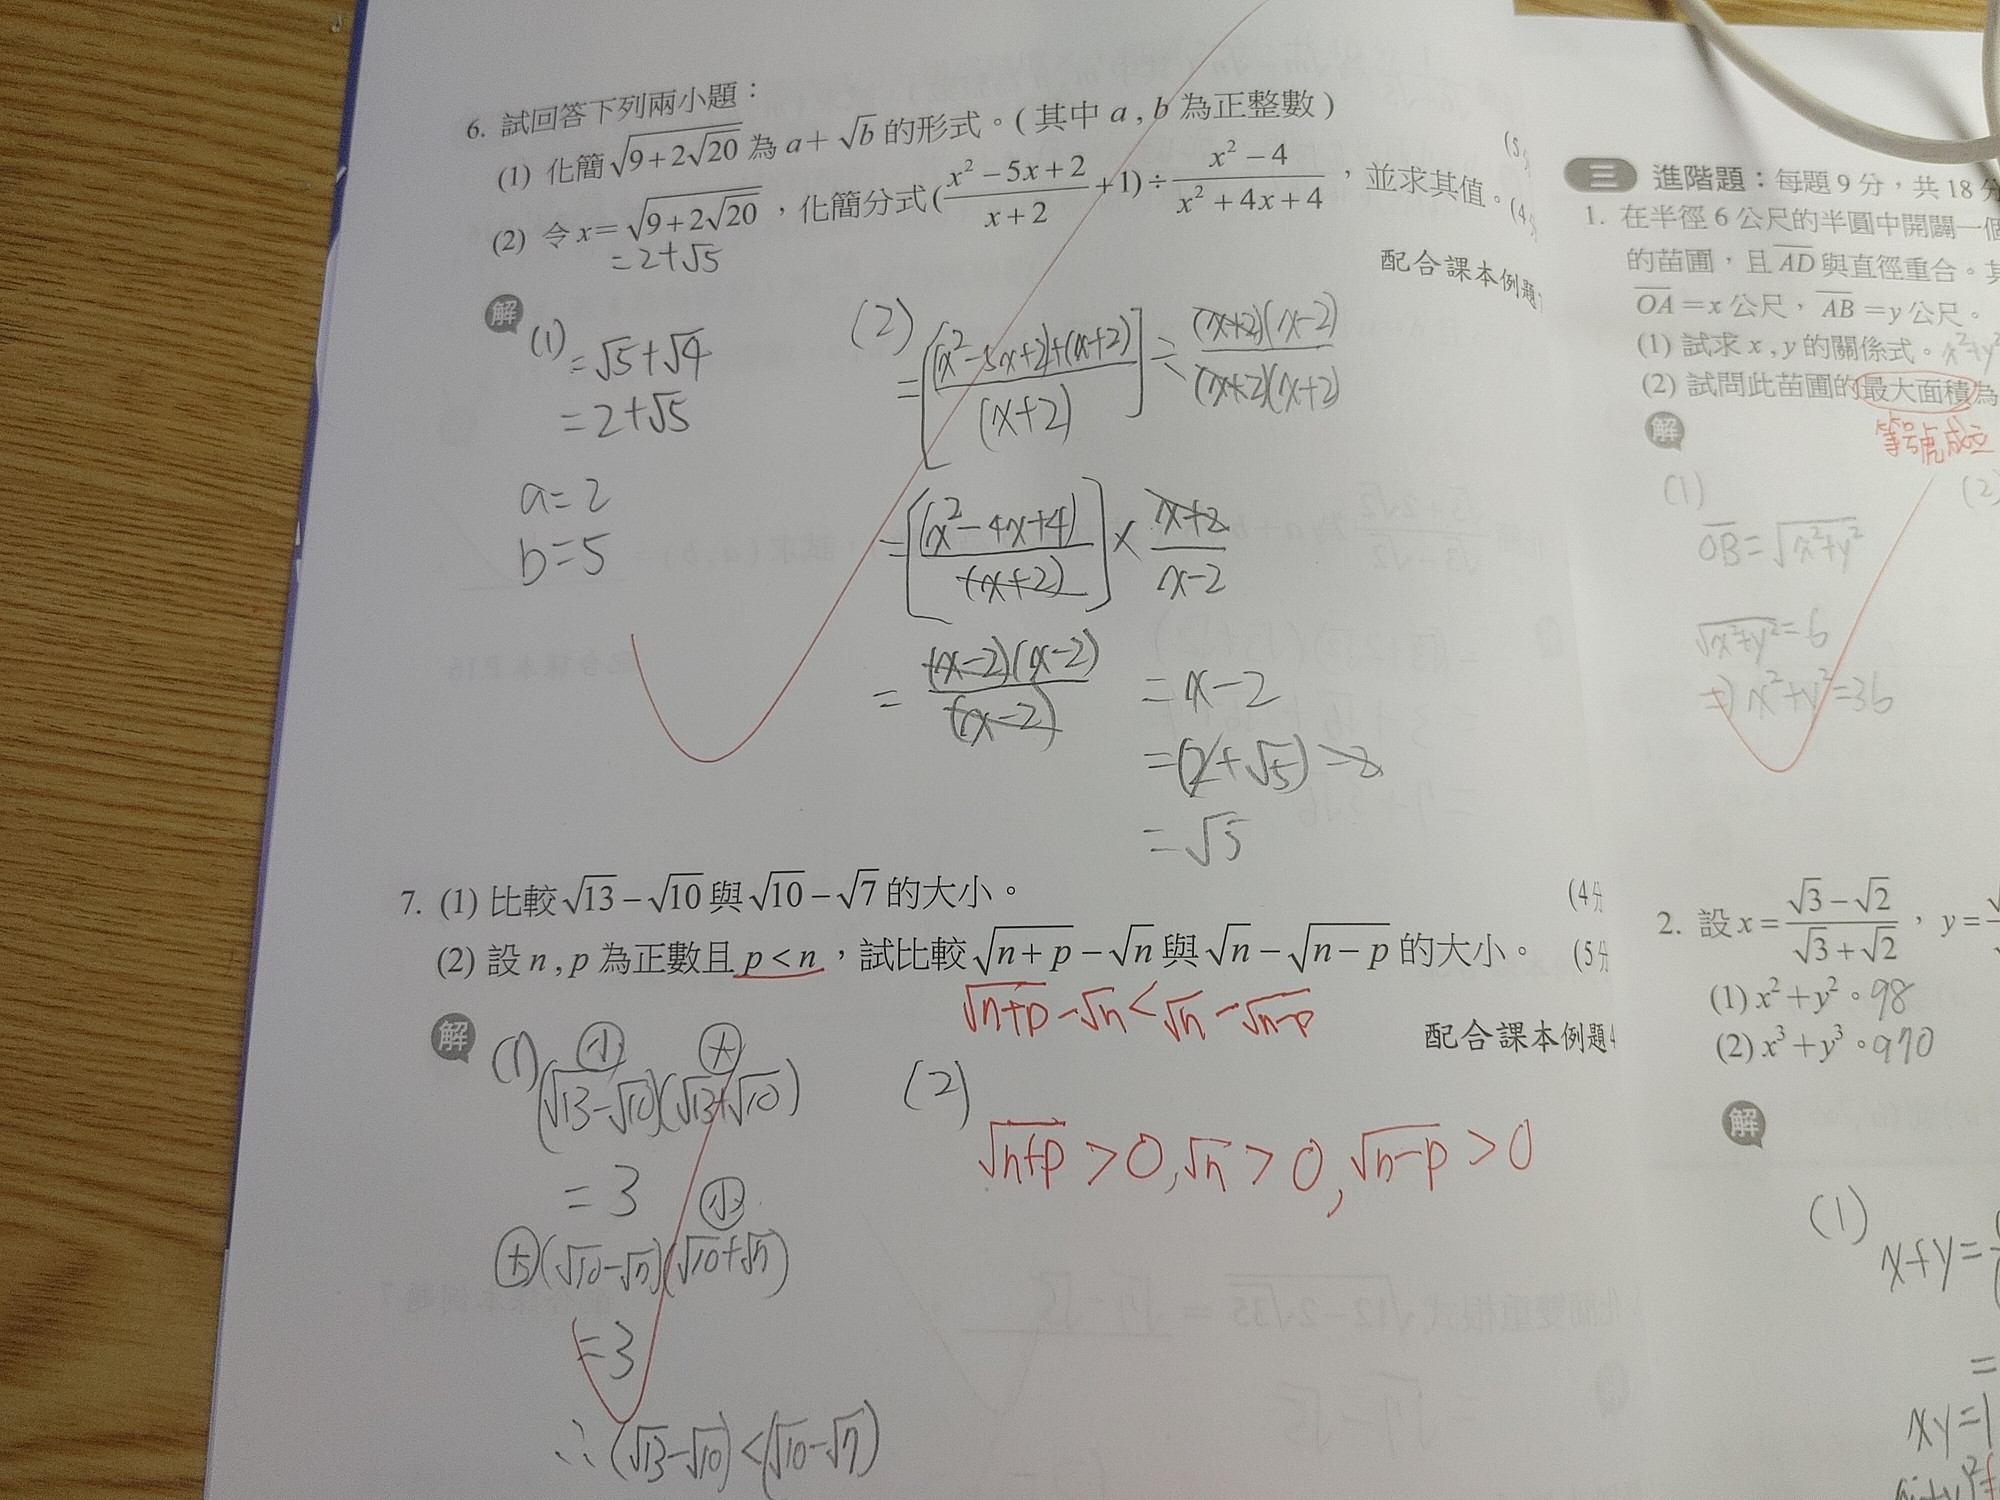 6. 試回答下列兩小題：
(1) 化簡√(9+2√20) 為 a+√b 的形式。( 其中 a , b 為正整數 )
(2) 令 x=√(9+2√20)，化簡分式( (x²−5x+2)/(x+2) +1)÷ (x²−4)/(x²+4x+4)，並求其值。(4
=2+√5
配合課本例題
解
(1)
=√5+√4
=2+√5
a=2
b=5
(2)
=[((x²−5x+2)+(x+2))/(x+2)]÷ ((x+2)(x−2))/((x+2)(x+2))
=[(x²−4x+4)/(x+2)]× (x+2)/(x−2)
= ((x−2)(x−2))/(x−2) =x−2
=(2+√5)−2
=√5
7. (1) 比較√13−√10 與√10−√7 的大小。 (4分
(2) 設 n , p 為正數且 p<n，試比較√(n+p)−√n 與√n−√(n−p) 的大小。 (5分
√(n+p)−√n<√n−√(n−p)
配合課本例題4
解
(1) 小 大
(√13−√10)(√13+√10)
=3
小
大(√10−√7)(√10+√7)
=3
∴(√13−√10)<(√10−√7)
(2)
√(n+p)>0,√n>0,√(n−p)>0
三 進階題：每題 9 分，共 18 分
1. 在半徑 6 公尺的半圓中開闢一個
的苗圃，且 AD 與直徑重合。其
OA=x 公尺，AB=y 公尺。
(1) 試求 x , y 的關係式。x²+y²
(2) 試問此苗圃的最大面積為
等號成立
解
(1)
OB=√(x²+y²)
√(x²+y²)=6
⇒x²+y²=36
(2)
2. 設 x= (√3−√2)/(√3+√2)，y=
(1) x²+y²。98
(2) x³+y³。970
解
(1)
x+y=
=
xy=1